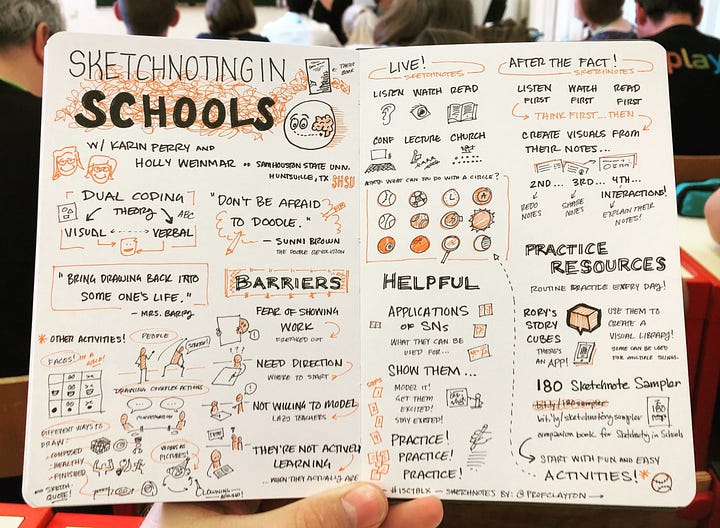 SKETCHNOTING IN
SCHOOLS
← THEIR
BOOK
W/ KARIN PERRY AND
HOLLY WEINMAR
SAM HOUSTON STATE UNIV.
HUNTSVILLE, TX
SHSU
DUAL CODING
THEORY
ABC
VISUAL
VERBAL
"DON'T BE AFRAID
TO DOODLE."
— SUNNI BROWN
THE DOODLE REVOLUTION
"BRING DRAWING BACK INTO
SOME ONE'S LIFE."
— MRS. BARRY
BARRIERS
FEAR OF SHOWING
WORK
PREPARED OUT
NEED DIRECTION
WHERE TO START
NOT WILLING TO MODEL
LAZY TEACHERS
THEY'RE NOT ACTIVELY
LEARNING
...WHEN THEY ACTUALLY ARE
* OTHER ACTIVITIES!
PEOPLE
FACES!
DRAWING COMPLEX ACTIONS
CONVERSATION
DIFFERENT WAYS TO
DRAW:
- COMPOSED
- HEALTHY
- FINISHED
SKETCH
QUOTE!
WORDS AS
PICTURES!
CLOWNING
AROUND!
LIVE!
SKETCHNOTES
LISTEN WATCH READ
CONF LECTURE CHURCH
WHAT CAN YOU DO WITH A CIRCLE?
HELPFUL
APPLICATIONS
OF SNs
WHAT THEY CAN BE
USED FOR...
SHOW THEM...
STEPS
MODEL IT!
GET THEM
EXCITED!
STAY EXCITED!
PRACTICE!
PRACTICE!
PRACTICE!
AFTER THE FACT!
SKETCHNOTES
LISTEN WATCH READ
FIRST FIRST FIRST
THINK FIRST...THEN
CREATE VISUALS FROM
THEIR NOTES...
2ND... 3RD... 4TH...
REDO
NOTES
SHARE
NOTES
INTERACTIONS!
EXPLAIN THEIR
NOTES!
PRACTICE
RESOURCES
ROUTINE PRACTICE EVERY DAY!
RORY'S
STORY
CUBES
THERE'S
AN APP!
USE THEM TO
CREATE A
VISUAL LIBRARY!
SOME CAN BE USED
FOR MULTIPLE THINGS.
180 Sketchnote Sampler
bit.ly/180sampler
bit.ly/sketchnotingsampler
companion book for Sketchnoting in Schools
180
START WITH FUN AND EASY
ACTIVITIES! *
#ISCTBLK — SKETCHNOTES BY: @PROFCLAYTON
play